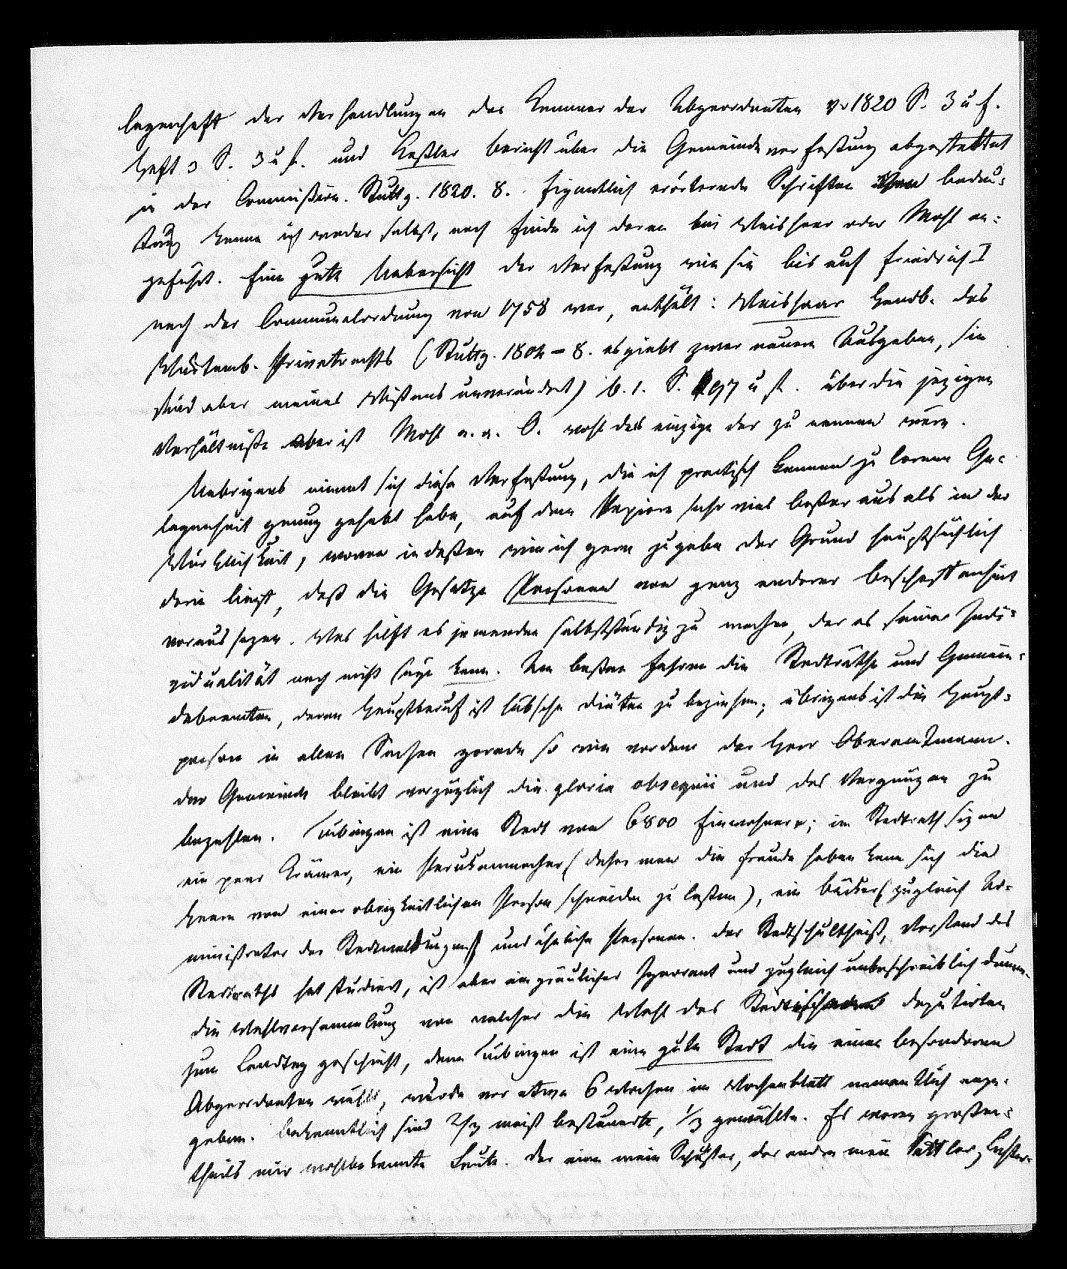 lagenheft der Verhandlungen der Kammer der Abgeordneten v. 1820 S. 3 u f.
Heft 3 S. 3 u f. und Keßler bericht über die Gemeindeverfaßung abgestattet
in der Commißion. Stuttg. 1820. 8. Eigentlich erörternde Schriften von bedeu-
tung kenne ich weder selbst, noch finde ich deren bei Weishaar oder Mohl an-
geführt. Eine gute Uebersicht der Verfaßung wie sie bis auf Friedrich I
nach der Communalordnung von 1758 war, enthält: Weishaar Handb. des
Würtemb. Privatrechts (Stuttg. 1804–8. es giebt zwar neuere Aufgaben, sie
sind aber meines Wißens unverändert) b. 1. S. 197 u f. über die jezigen
Verhältniße aber ist Mohl a. a. O. wohl das einzige der zu nennen wäre.
Uebrigens nimmt sich diese Verfaßung, die ich practisch kennen zu lernen Ge-
legenheit genug gehabt habe, auf dem Papiere sehr viel beßer aus als in der
Würklichkeit, wovon indeßen wie ich gern zugebe der Grund hauptsächlich
darin liegt, daß die Gesetze Personen von ganz anderer beschaffenheit
voraussezen. Was hilft es jemanden selbstständig zu machen, der es seiner Indi-
vidualität nach nicht seyn kann. Am besten fahren die Stadträthe und Gemein-
debeamten, deren Hauptberuf ist hübsche Diäten zu beziehen; übrigens ist die Haupt-
person in allen Sachen gerade so wie vordem der Herr Oberamtmann.
der Gemeinde bleibt vorzüglich die gloria obsequii und das Vergnügen zu
bezahlen. Tübingen ist eine Stadt von 6800 Einwohnern; im Stadtrath sizen
ein paar Krämer, ein Perukenmacher (daher man die Freude haben kann sich die
Haare von einer obrigkeitlichen Person schneiden zu laßen), ein bäcker (zugleich Ad-
ministrator der Stadtwaldungen) und ähnliche Personen. der Stadtschultheiß, Vorstand des
Stadtraths hat studiert, ist aber ein gräulicher Ignorant und zugleich unbeschreiblich dumm.
die Wahlversammlung von welcher die Wahl des Städtischen deputirten
zum Landtag geschieht, denn Tübingen ist eine gute Stadt die einen besonderen
Abgeordneten wählt, wurde vor etwa 6 Wochen im Wochenblatt namentlich ange-
geben. bekanntlich sind 2/3 meist besteuerte, 1/3 gewählte. Es waren großen-
theils mir wohlbekannte Leute. der eine mein Schuster, der andre mein Sattler,